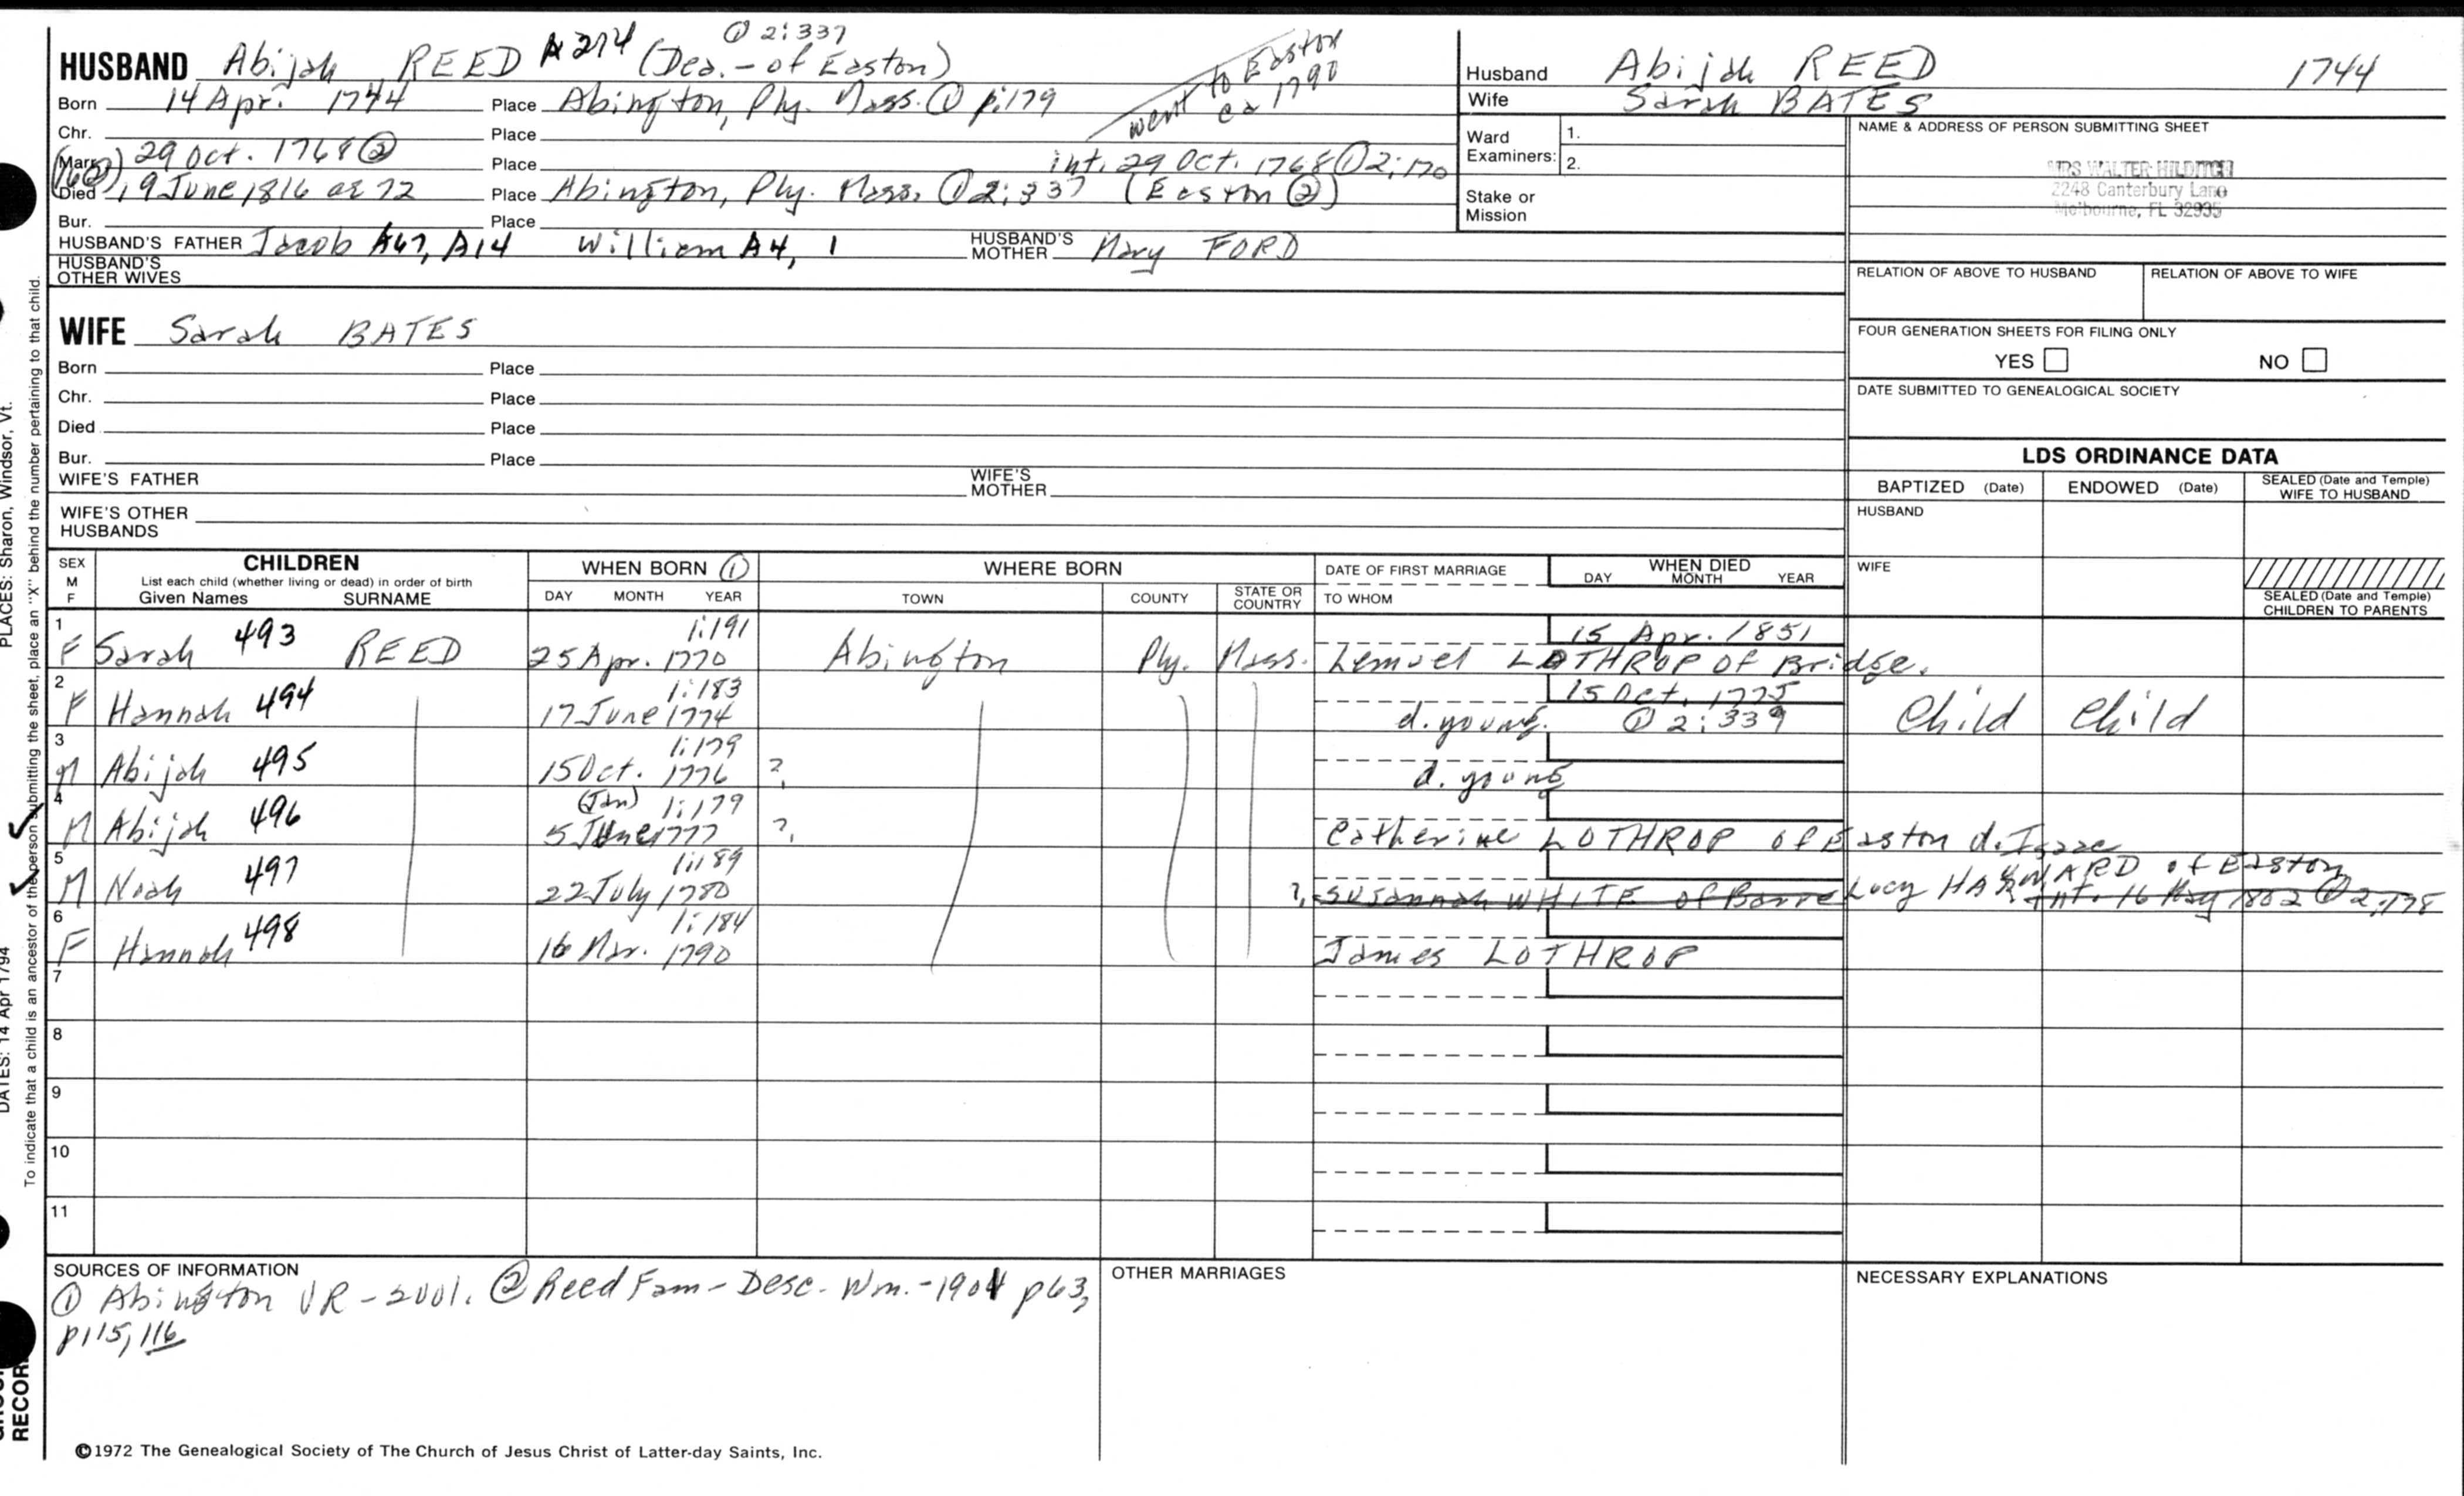 ① 2:337
HUSBAND Abijah REED A274 (Dea. - of Easton)
went to Easton
ca 1790
Born 14 Apr. 1744 Place Abington, Ply. Mass. ① p:179
Chr. Place
Marr 29 Oct. 1768 ② Place int. 29 Oct. 1768 ① 2:170
Died 19 June 1816 ae 72 Place Abington, Ply. Mass. ① 2:337 (Easton ②)
Bur. Place
HUSBAND'S FATHER Jacob A67, A14 William A4, 1 HUSBAND'S MOTHER Mary FORD
HUSBAND'S OTHER WIVES
WIFE Sarah BATES
Born Place
Chr. Place
Died Place
Bur. Place
WIFE'S FATHER WIFE'S MOTHER
WIFE'S OTHER HUSBANDS
Husband Abijah REED 1744
Wife Sarah BATES
Ward Examiners: 1.
2.
Stake or Mission
NAME & ADDRESS OF PERSON SUBMITTING SHEET
MRS WALTER HILDITCH
2248 Canterbury Lane
Melbourne, FL 32935
RELATION OF ABOVE TO HUSBAND RELATION OF ABOVE TO WIFE
FOUR GENERATION SHEETS FOR FILING ONLY
YES NO
DATE SUBMITTED TO GENEALOGICAL SOCIETY
LDS ORDINANCE DATA
BAPTIZED (Date) ENDOWED (Date) SEALED (Date and Temple) WIFE TO HUSBAND
HUSBAND
WIFE
SEALED (Date and Temple) CHILDREN TO PARENTS
SEX M F
CHILDREN
List each child (whether living or dead) in order of birth
Given Names SURNAME
WHEN BORN ①
DAY MONTH YEAR
WHERE BORN
TOWN COUNTY STATE OR COUNTRY
DATE OF FIRST MARRIAGE
TO WHOM
WHEN DIED
DAY MONTH YEAR
1 1:191 15 Apr. 1851
F Sarah 493 REED 25 Apr. 1770 Abington Ply. Mass. Lemuel LOTHROP of Bridge.
2 1:183 15 Oct. 1775
F Hannah 494 17 June 1774 d. young. ① 2:339 Child Child
3 1:179
M Abijah 495 15 Oct. 1776 ? d. young
4 (Jan) 1:179
M Abijah 496 5 June 1777 ? Catherine LOTHROP of Easton d. Isaac
5 1:189
M Noah 497 22 July 1780 ? Susannah WHITE of Barre Lucy HAYWARD of Easton
int. 16 May 1802 ① 2:178
6 1:184
F Hannah 498 16 Mar. 1790 James LOTHROP
7
8
9
10
11
SOURCES OF INFORMATION
① Abington VR - 2vol. ② Reed Fam - Desc. Wm. - 1901 p63,
p115, 116
OTHER MARRIAGES
NECESSARY EXPLANATIONS
©1972 The Genealogical Society of The Church of Jesus Christ of Latter-day Saints, Inc.
PLACES: Sharon, Windsor, Vt.
DATES: 14 Apr 1794
To indicate that a child is an ancestor of the person submitting the sheet, place an "X" behind the number pertaining to that child.
RECOR